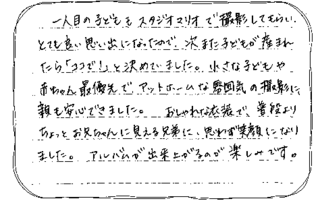 一人目の子どももスタジオマリオで撮影してもらい、
とても良い思い出になったので、次また子どもが産まれ
たら「ココで!」と決めていました。小さな子どもや
赤ちゃん最優先で、アットホームな雰囲気の撮影に
親も安心できました。 おしゃれな衣装で、普段より
ちょっとお兄ちゃんに見える兄弟に、思わず笑顔になり
ました。アルバムが出来上がるのが楽しみです。